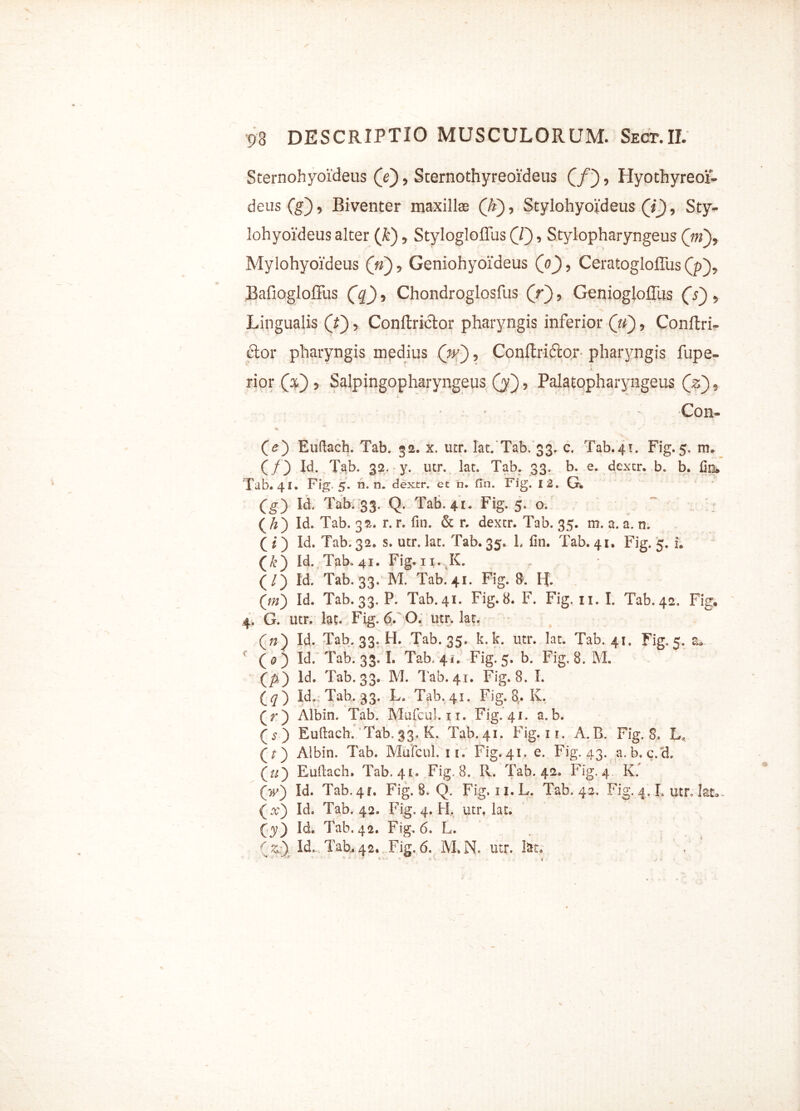 98 DESCRIPTIO MUSCULORUM. Sect. II.
Sternohyoïdeus (e), Sternothyreoïdeus (f), Hyothyreoï-
deus (g), Biventer maxillæ (h), Stylohyoïdeus (i), Sty-
lohyoïdeus alter (k), Stylogloſſus (l), Stylopharyngeus (m),
Mylohyoïdeus (n), Geniohyoïdeus (o), Ceratogloſſus (p),
Baſiogloſſus (q), Chondroglosſus (r), Geniogloſſus (s),
Lingualis (t), Conſtrictor pharyngis inferior (u), Conſtri-
ctor pharyngis medius (w), Conſtrictor pharyngis ſupe-
rior (x), Salpingopharyngeus (y), Palatopharyngeus (z),
Con-
(e) Euſtach. Tab. 32. x. utr. lat. Tab. 33. c. Tab. 41. Fig. 5. m.
(f) Id. Tab. 32. y. utr. lat. Tab. 33. b. e. dextr. b. b. ſin.
Tab. 41. Fig. 5. n. n. dextr. et n. ſin. Fig. 12. G.
(g) Id. Tab. 33. Q. Tab. 41. Fig. 5. o.
(h) Id. Tab. 32. r. r. ſin. & r. dextr. Tab. 35. m. a. a. n.
(i) Id. Tab. 32. s. utr. lat. Tab. 35. l. ſin. Tab. 41. Fig. 5. i.
(k) Id. Tab. 41. Fig. 11. K.
(l) Id. Tab. 33. M. Tab. 41. Fig. 8. H.
(m) Id. Tab. 33. P. Tab. 41. Fig. 8. F. Fig. 11. I. Tab. 42. Fig.
4. G. utr. lat. Fig. 6. O. utr. lat.
(n) Id. Tab. 33. H. Tab. 35. k. k. utr. lat. Tab. 41. Fig. 5. a.
(o) Id. Tab. 33. I. Tab. 41. Fig. 5. b. Fig. 8. M.
(p) Id. Tab. 33. M. Tab. 41. Fig. 8. I.
(q) Id. Tab. 33. L. Tab. 41. Fig. 8. K.
(r) Albin. Tab. Muſcul. 11. Fig. 41. a. b.
(s) Euſtach. Tab. 33. K. Tab. 41. Fig. 11. A. B. Fig. 8. L.
(t) Albin. Tab. Muſcul. 11. Fig. 41. e. Fig. 43. a. b. c. d.
(u) Euſtach. Tab. 41. Fig. 8. R. Tab. 42. Fig. 4 K.
(w) Id. Tab. 41. Fig. 8. Q. Fig. 11. L. Tab. 42. Fig. 4. I. utr. lat.
(x) Id. Tab. 42. Fig. 4. H. utr. lat.
(y) Id. Tab. 42. Fig. 6. L.
(z) Id. Tab. 42. Fig. 6. M. N. utr. lat.